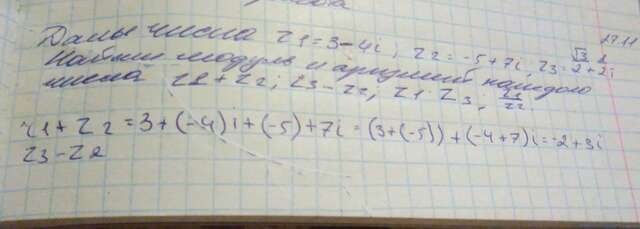 27.11
Даны числа z1=3-4i, z2=-5+7i, z3=√3/2+1/2i
Найти модуль и аргумент каждого
числа z1+z2; z3-z2; z1·z3, z1/z2
z1+z2=3+(-4)i+(-5)+7i=(3+(-5))+(-4+7)i=-2+3i
z3-z2